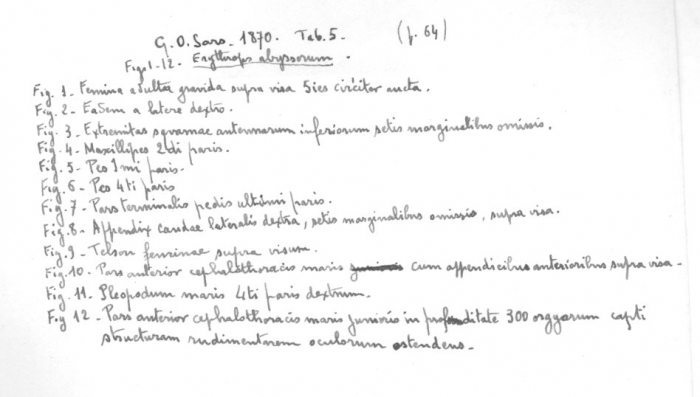 G. O. Sars. 1870. Tab. 5. (p. 64)
Figs 1-12. Erythrops abyssorum.
Fig. 1. Femina adulta gravida supra visa 5ies circiter aucta.
Fig. 2 - Eadem a latere dextro.
Fig. 3. Extremitas squamae antennarum inferiorum setis marginalibus omissis.
Fig. 4 - Maxillipes 2di paris.
Fig. 5 - Pes 1mi paris.
Fig. 6 - Pes 4ti paris
Fig. 7 - Pars terminalis pedis ultimi paris.
Fig. 8 - Appendix caudae lateralis dextra, setis marginalibus omissis, supra visa.
Fig. 9 - Telson feminae supra visum.
Fig. 10. - Pars anterior cephalothoracis maris cum appendicibus anterioribus supra visa -
Fig. 11. Pleopodum maris 4ti paris dextrum.
Fig 12 - Pars anterior cephalothoracis maris junioris in profunditate 300 orgyarum capti
structuram rudimentarem oculorum ostendens.